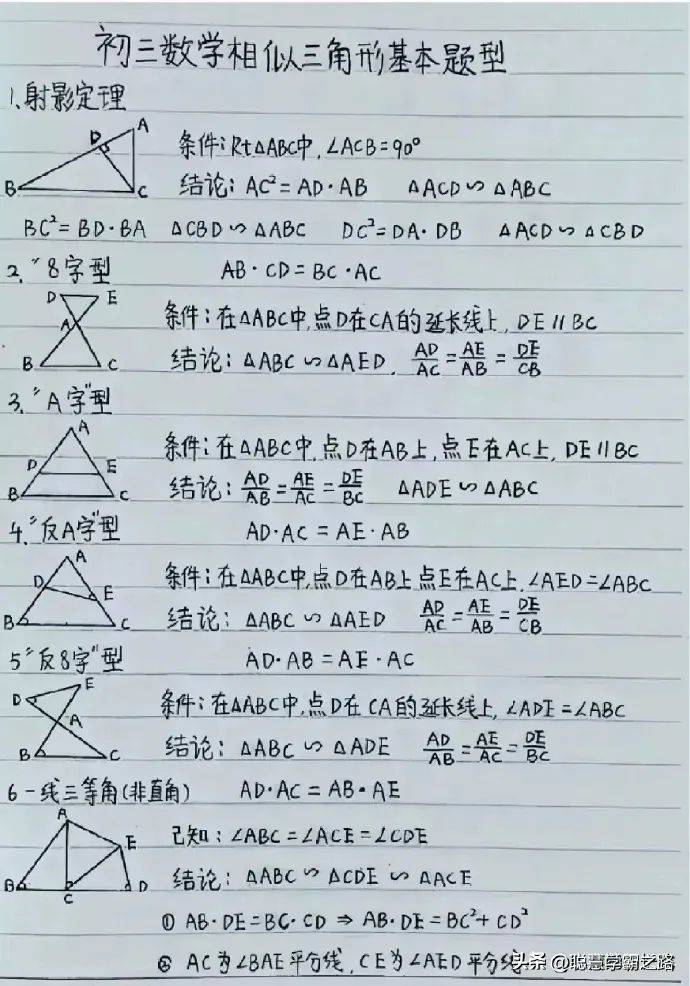 初三数学相似三角形基本题型
1.射影定理
A
D
B
C
条件:Rt△ABC中,∠ACB=90°
结论:AC²=AD·AB △ACD∽△ABC
BC²=BD·BA △CBD∽△ABC DC²=DA·DB △ACD∽△CBD
2."8字型 AB·CD=BC·AC
D E
A
B C
条件:在△ABC中,点D在CA的延长线上,DE∥BC
结论:△ABC∽△AED, AD/AC=AE/AB=DE/CB
3."A字"型
A
D E
B C
条件:在△ABC中,点D在AB上,点E在AC上,DE∥BC
结论:AD/AB=AE/AC=DE/BC △ADE∽△ABC
4."反A字"型 AD·AC=AE·AB
A
D
E
B C
条件:在△ABC中,点D在AB上点E在AC上,∠AED=∠ABC
结论:△ABC∽△AED AD/AC=AE/AB=DE/CB
5"反8字"型 AD·AB=AE·AC
E
D
A
B C
条件:在△ABC中,点D在CA的延长线上,∠ADE=∠ABC
结论:△ABC∽△ADE AD/AB=AE/AC=DE/BC
6一线三等角(非直角) AD·AC=AB·AE
A
E
B C D
已知:∠ABC=∠ACE=∠CDE
结论:△ABC∽△CDE∽△ACE
① AB·DE=BC·CD⇒AB·DE=BC²+CD²
② AC为∠BAE平分线,CE为∠AED平分线
头条@聪慧学霸之路